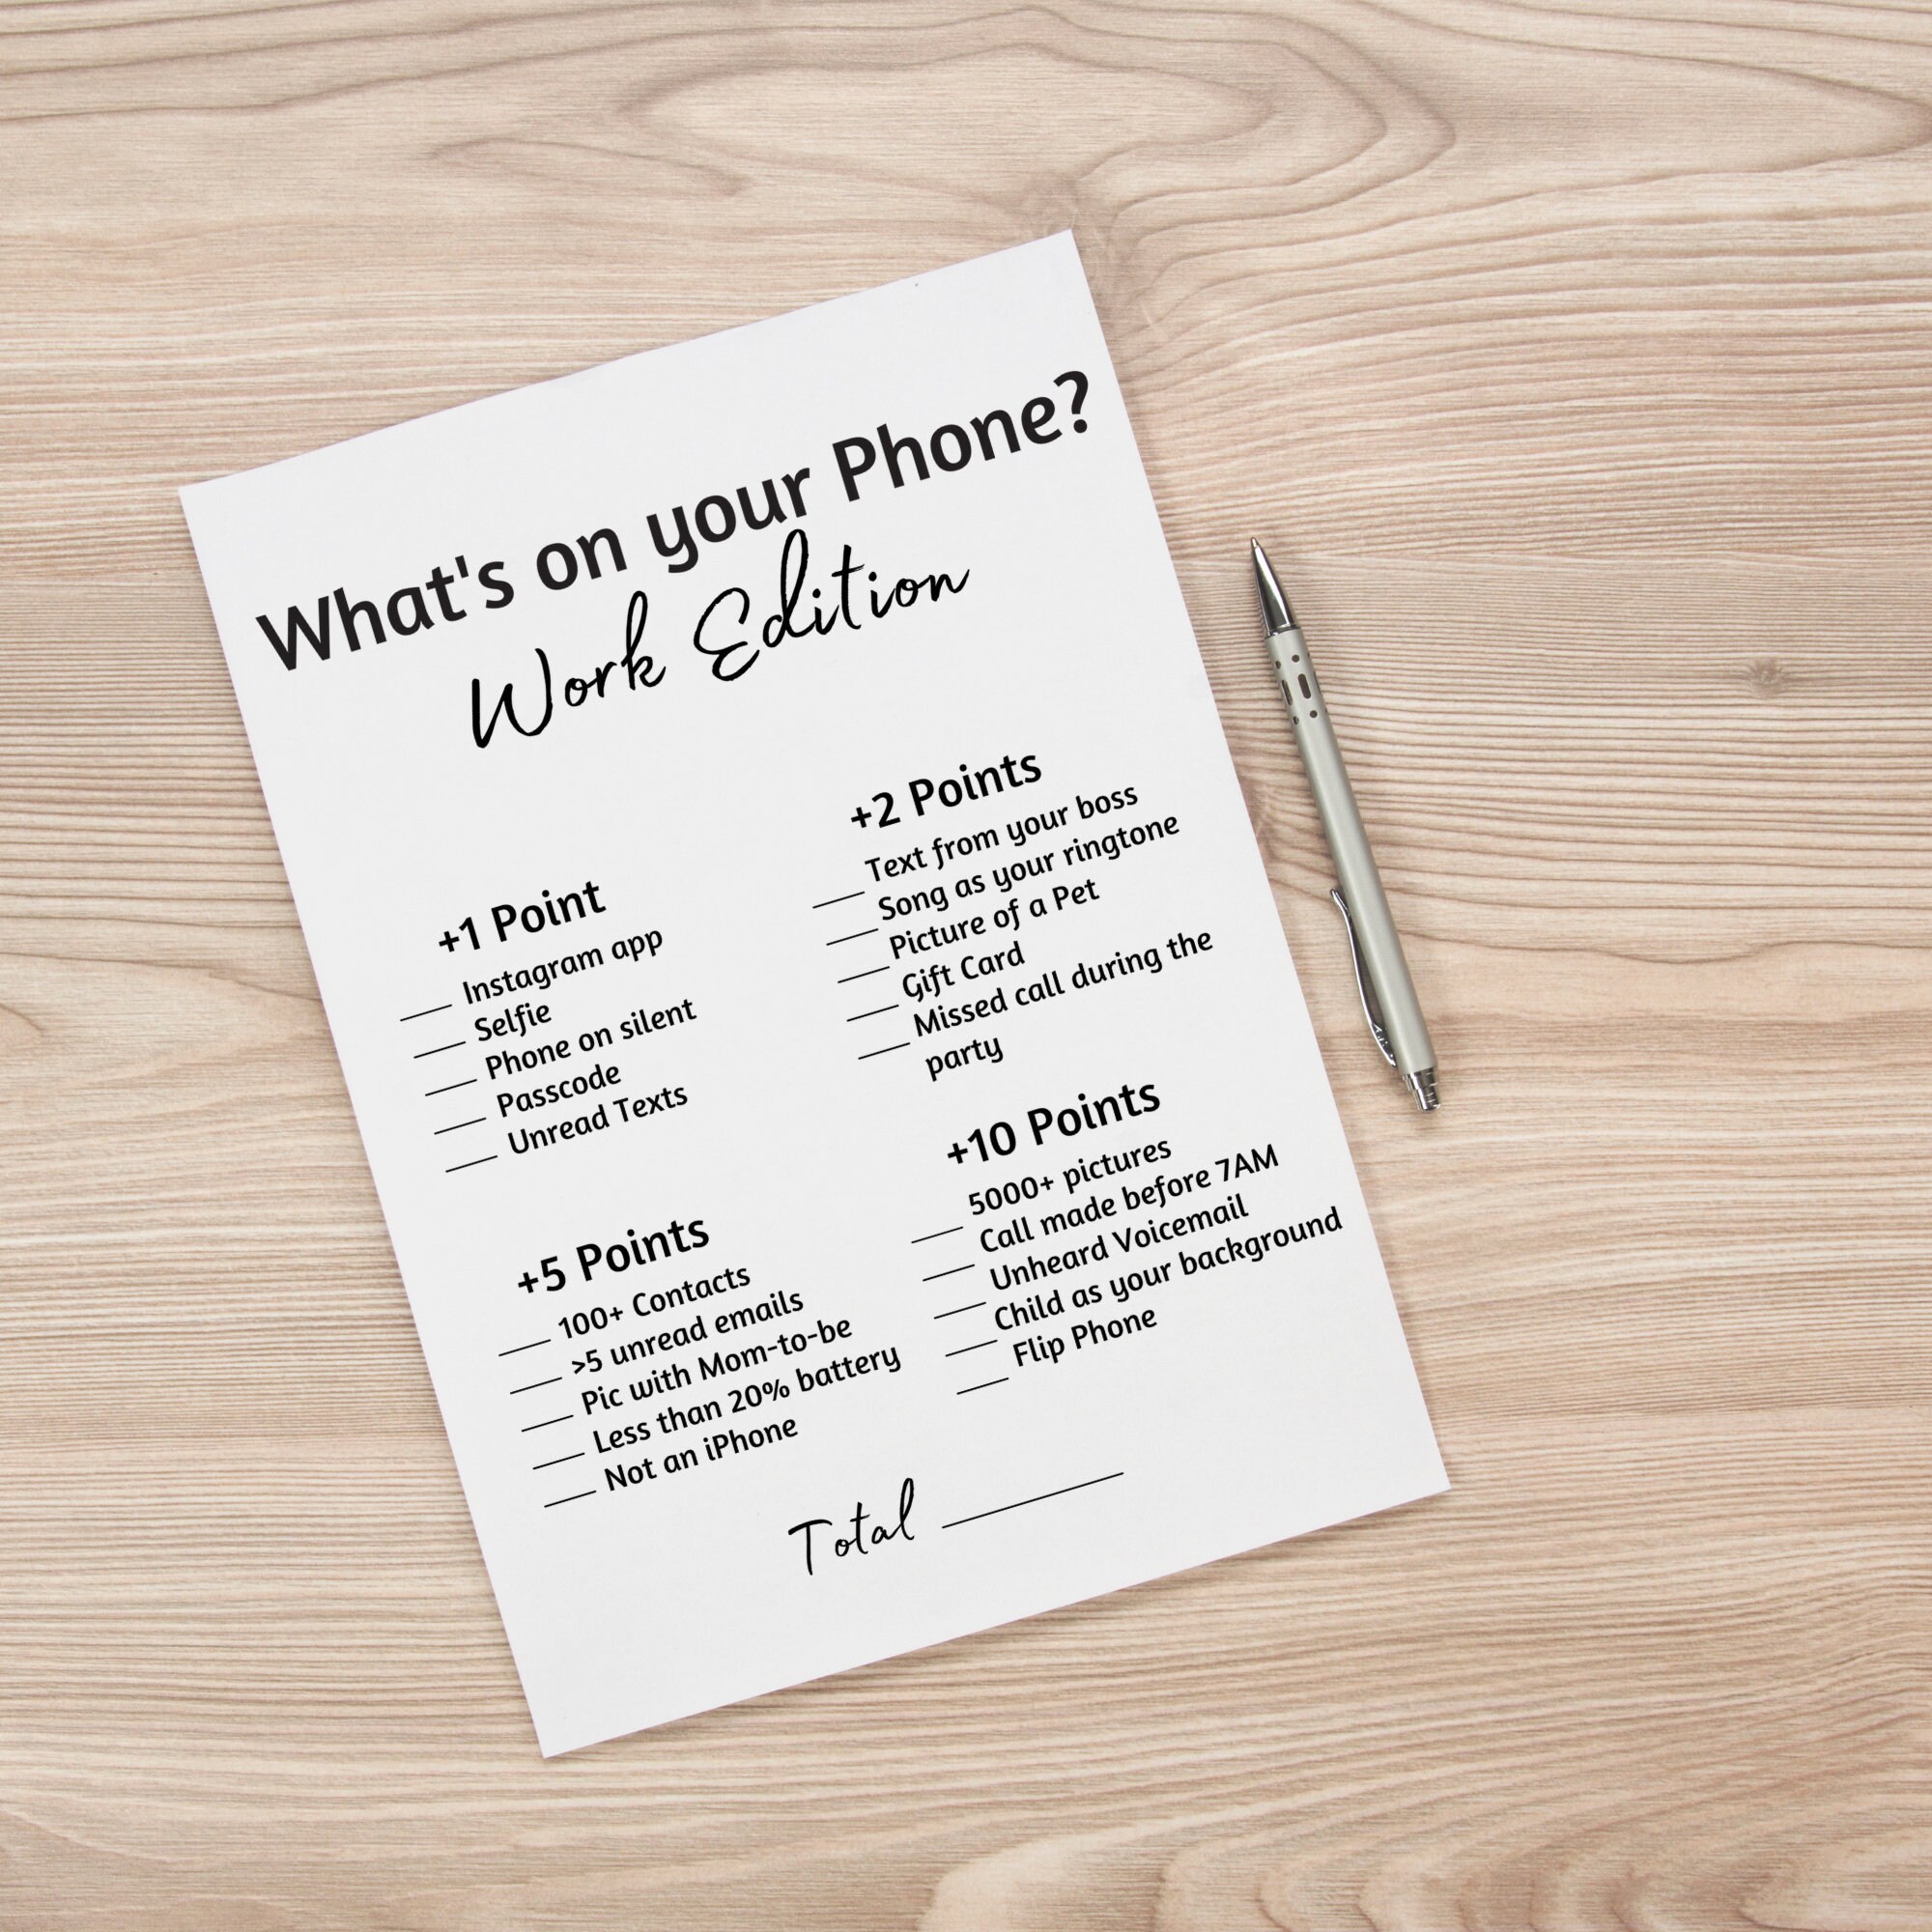 What's on your Phone?
Work Edition
+1 Point
___ Instagram app
___ Selfie
___ Phone on silent
___ Passcode
___ Unread Texts
+2 Points
___ Text from your boss
___ Song as your ringtone
___ Picture of a Pet
___ Gift Card
___ Missed call during the
party
+5 Points
___ 100+ Contacts
___ >5 unread emails
___ Pic with Mom-to-be
___ Less than 20% battery
___ Not an iPhone
+10 Points
___ 5000+ pictures
___ Call made before 7AM
___ Unheard Voicemail
___ Child as your background
___ Flip Phone
Total ___